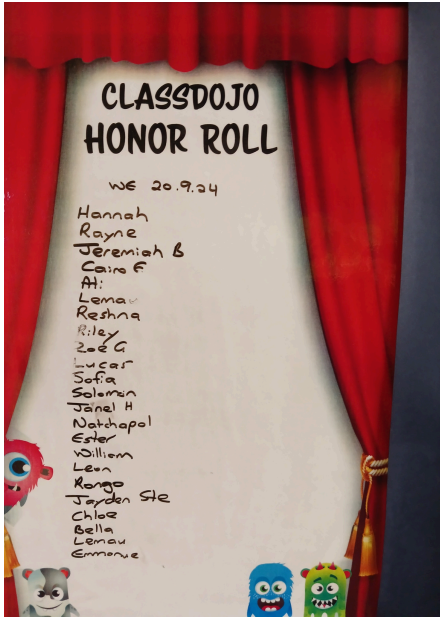 CLASSDOJO
HONOR ROLL
WE 20.9.24
Hannah
Rayne
Jeremiah B
Cairo F
Ali
Lemau
Reshna
Riley
Zoe G
Lucas
Sofia
Solomon
Janel H
Natchapol
Ester
William
Leon
Rongo
Jayden Ste
Chloe
Bella
Lemau
Emmanue